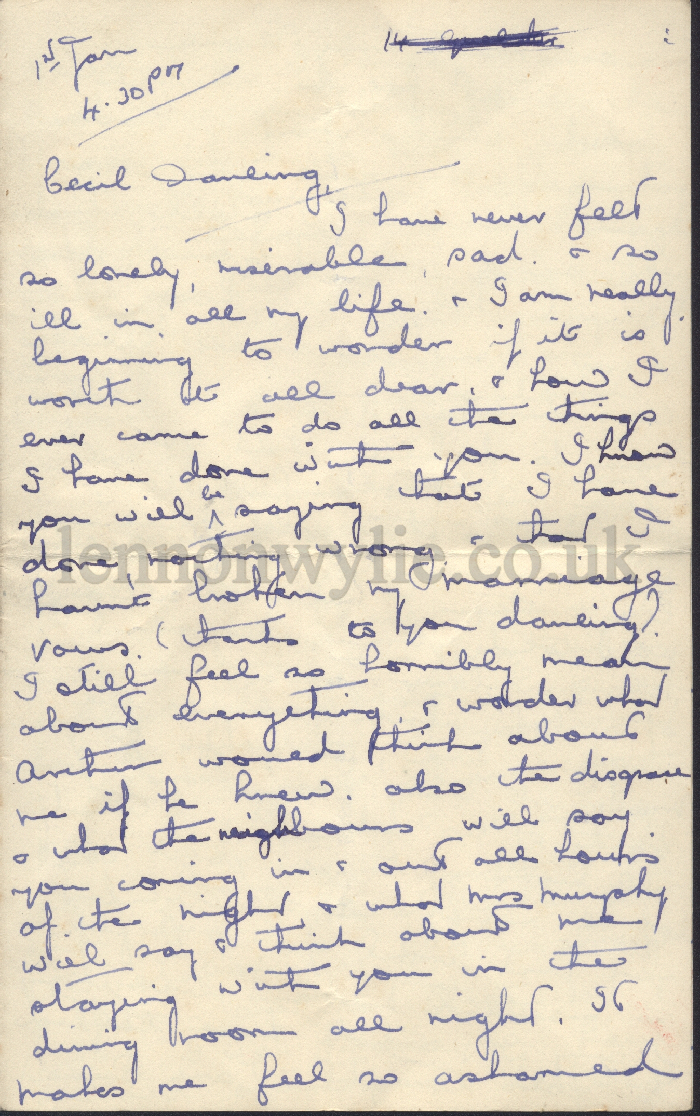 14
1st Jan
4.30pm
Cecil Darling,
I have never felt
so lonely, miserable, sad. & so
ill in all my life. & I am really
beginning to wonder if it is
worth it all dear. & how I
ever came to do all the things
I have done with you. I know
you will be saying that I have
done nothing wrong, & that I
havnt broken my marriage
vows. (thanks to you darling)
I still feel so horribly mean
about everything, & wonder what
Arthur would think about
me if he knew. also the disgrace
& what the neighbours will say
you coming in & out all hours
of the night, & what Mrs Murphy
will say & think about me
staying with you in the
dining room all night. It
makes me feel so ashamed
lennonwylie.co.uk